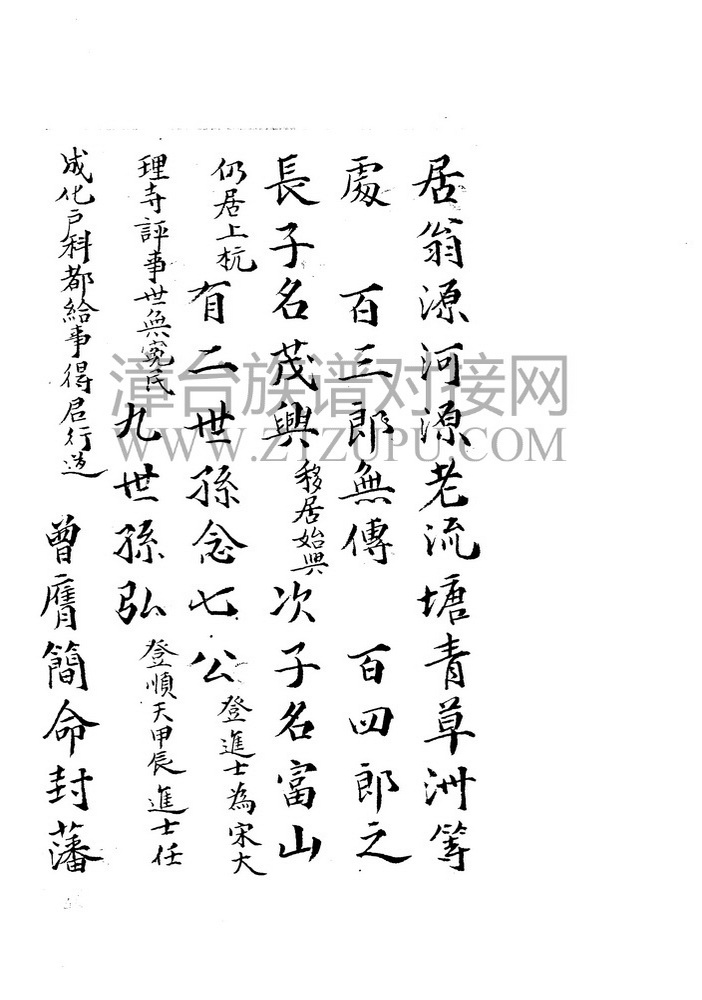 居翁源河源老流塘青草洲等
處　百三郎無傳　百四郎之
長子名茂興移居始興次子名富山
仍居上杭　有二世孫念七公登進士為宋大
理寺評事世無冤民　九世孫弘登順天甲辰進士任
成化戶科都給事得君行道　曾膺簡命封藩
漳台族谱对接网
WWW.ZTZUPU.COM